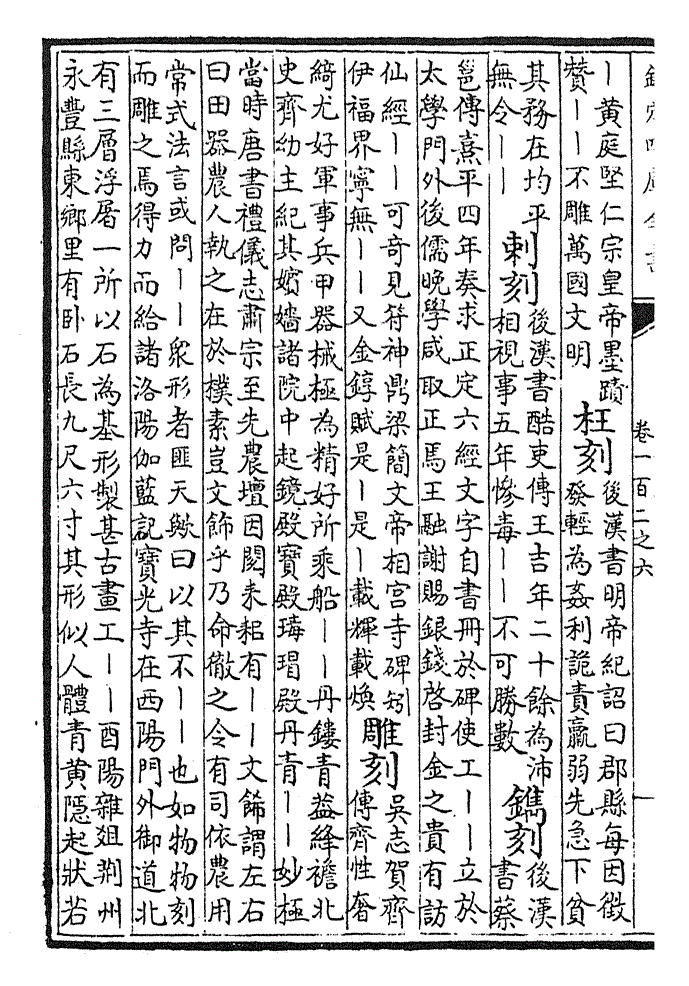 欽定四庫全書
卷一百二之六
丨黄庭堅仁宗皇帝墨蹟
贊丨丨不雕萬國文明
枉刻
後漢書明帝紀詔曰郡縣每因徵
發輕為姦利詭責羸弱先急下貧
其務在均平
無令丨丨
剌刻
後漢書酷吏傳王吉年二十餘為沛
相視事五年慘毒丨丨不可勝數
鐫刻
後漢
書蔡
邕傳熹平四年奏求正定六經文字自書冊於碑使工丨丨立於
太學門外後儒晚學咸取正焉王融謝賜銀錢啓封金之貴有訪
仙經丨丨可奇見符神鼎梁簡文帝相宫寺碑矧
伊福界寧無丨丨又金錞賦是丨是丨載輝載煥
雕刻
吳志賀齊
傳齊性奢
綺尤好軍事兵甲器械極為精好所乘船丨丨丹鏤青蓋絳襜北
史齊幼主紀其嬪嬙諸院中起鏡殿寶殿瑇瑁殿丹青丨丨妙極
當時唐書禮儀志肅宗至先農壇因閱耒耜有丨丨文飾謂左右
曰田器農人執之在於樸素豈文飾乎乃命徹之令有司依農用
常式法言或問丨丨衆形者匪天歟曰以其不丨丨也如物物刻
而雕之焉得力而給諸洛陽伽藍記寶光寺在西陽門外御道北
有三層浮屠一所以石為基形製甚古畫工丨丨酉陽雜爼荆州
永豐縣東鄉里有卧石長九尺六寸其形似人體青黄隱起狀若